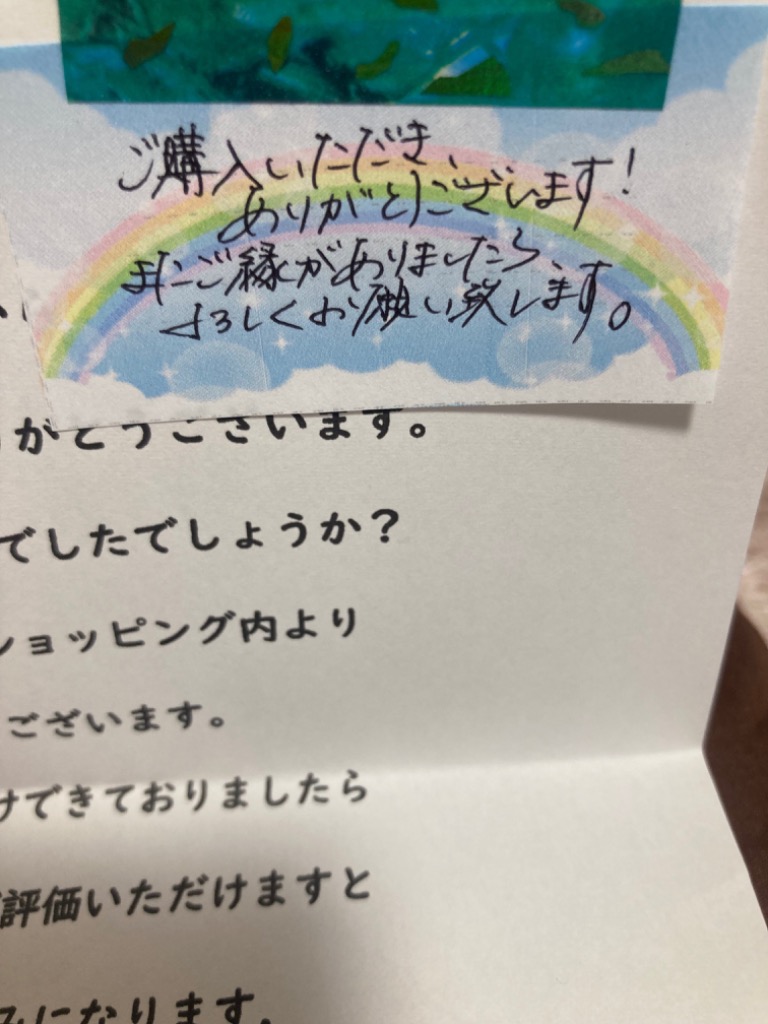 ご購入いただき、
ありがとうございます!
またご縁がありましたら、
よろしくお願い致します。
がとうございます。
でしたでしょうか?
ショッピング内より
ございます。
けできておりましたら
評価いただけますと
になります。